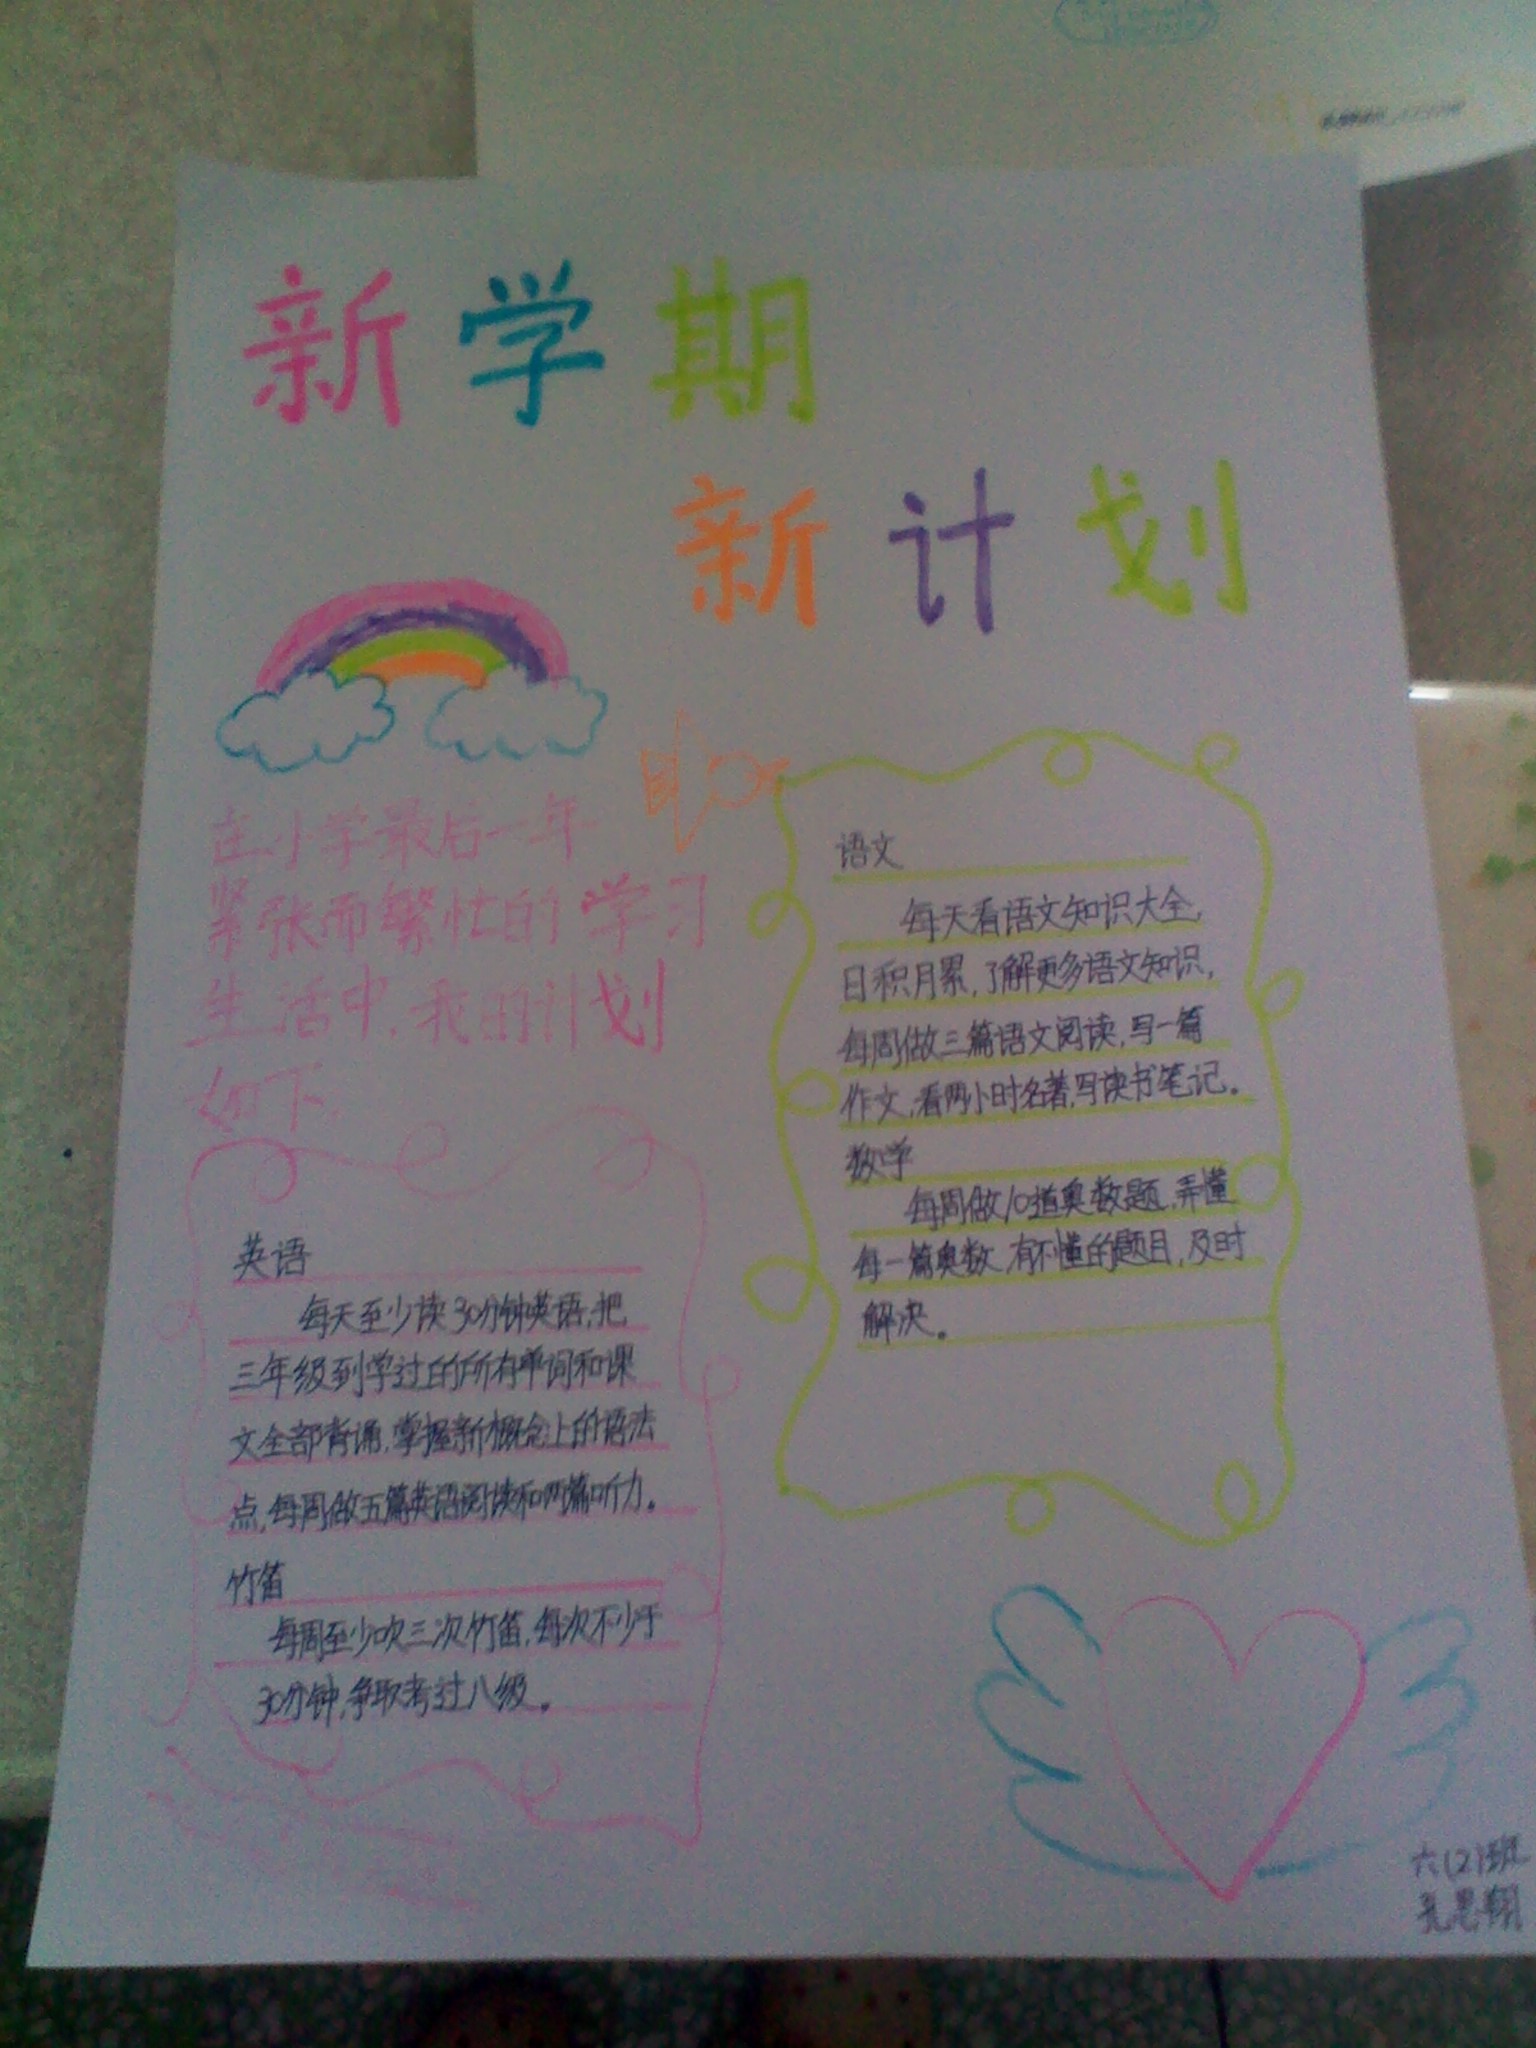 新学期
新计划
在小学最后一年
紧张而繁忙的学习
生活中,我的计划
如下.
语文
每天看语文知识大全,
日积月累,了解更多语文知识,
每周做三篇语文阅读,写一篇
作文,看两小时名著,写读书笔记。
数学
每周做10道奥数题,弄懂
每一篇奥数,有不懂的题目,及时
解决。
英语
每天至少读30分钟英语,把
三年级到学过的所有单词和课
文全部背诵,掌握新概念上的语法
点,每周做五篇英语阅读和两篇听力。
竹笛
每周至少吹三次竹笛,每次不少于
30分钟,争取考过八级。
六(2)班